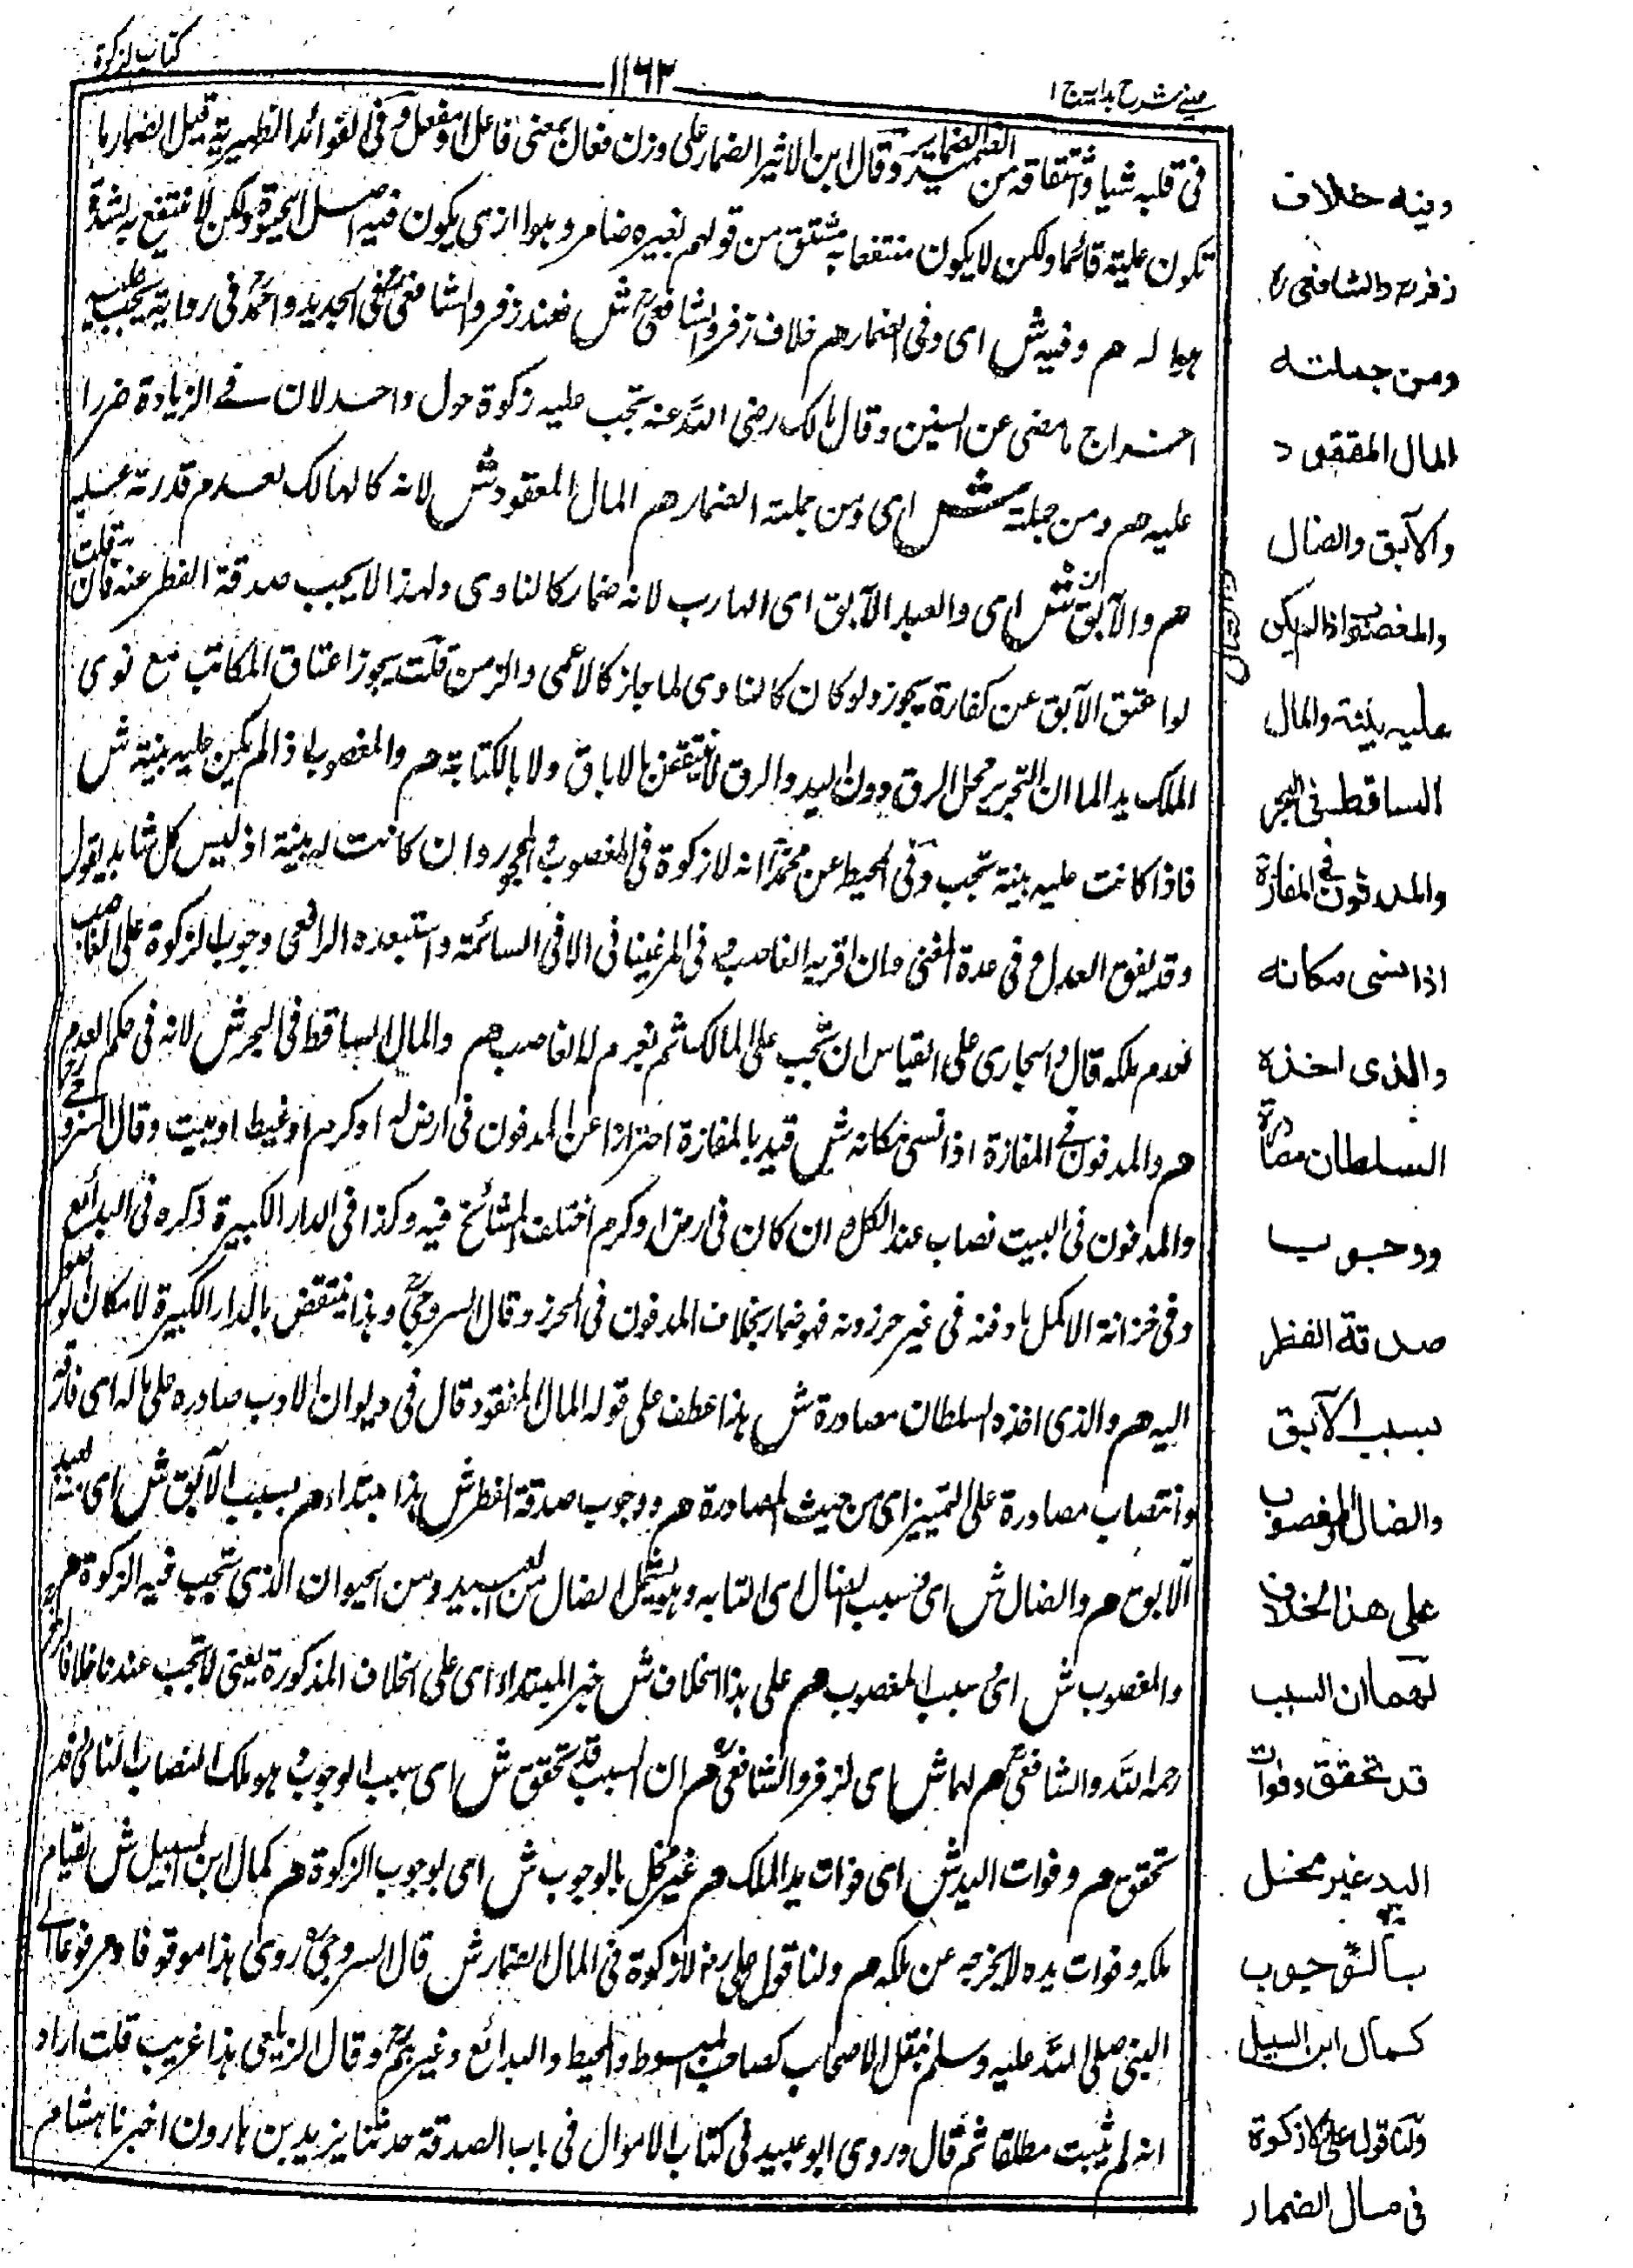 كتاب الزكوة
١١٦٢
عيني شرح هداية ج ١
في قلبه شيا واشتقاقه من وقال ابن الاثير الضمار على وزن فعال بمعنى فاعل او مفعل وفي الفوائد الظهيرية قيل الضمار ما
تكون عليته قائما ولكن لا يكون منتفعا به مشتق من قولهم بعير ضامر وهو الذى يكون فيه اصل الحيوة ولكن لا ينتفع به لشدة
هزاله هم وفيه ش اى وفي الضمار هم خلاف زفر والشافعى ش فعند زفر والشافعى في الجديد واحمد في رواية يجب عليه
اخراج ما مضى عن السنين وقال مالك رضى الله عنه تجب عليه زكوة حول واحد لان في الزيادة ضررا
عليه هم ومن جملته ش اى ومن جملة الضمار هم المال المفقود ش لانه كالهالك لعدم قدرته عليه
هم والآبق ش اى والعبد الآبق اى الهارب لانه ضمار كالناوى ولهذا لا يجب صدقة الفطر عنه فان قلت
لو اعتق الآبق عن كفارة يجوز ولو كان كالناوى لما جاز كالاعمى والزمن قلت يجوز اعتاق المكاتب مع توى
الملك يدا لما ان التحرير محل الرق دون اليد والرق لا ينتقص بالاباق ولا بالكتابة هم والمغصوب اذا لم يكن عليه بينة ش
فاذا كانت عليه بينة تجب وفي المحيط عن محمد انه لا زكوة في المغصوب والمجحور وان كانت له بينة اذ ليس كل شاهد يقول
وقد يفوق العدل وفي عدة المفتى وان اقر به الغاصب وفي المرغينانى الا في السائمة واستبعده الرافعى وجوب الزكوة على الغاصب
لعدم ملكه قال والجارى على القياس ان تجب على المالك ثم يغرم له الغاصب هم والمال الساقط في البحر ش لانه في حكم العدم
هم والمدفون في المفازة اذا نسى مكانه ش قيد بالمفازة احترازا عن المدفون في ارض له او كرم او غيط او بيت وقال السروجى
والمدفون في البيت نصاب عند الكل وان كان في ارض او كرم اختلف المشائخ فيه وكذا في الدار الكبيرة ذكره في البدائع
وفي خزانة الاكمل ما دفنه في غير حرز ونه فهو ضمار بخلاف المدفون في الحرز وقال السروجى وهذا ينتقض بالدار الكبيرة لامكان الوصول
اليه هم والذى اخذه السلطان مصادرة ش هذا عطف على قوله المال المفقود قال في ديوان الادب صادره على ماله اى فارقه
وانتصاب مصادرة على التمييز اى من حيث المصادرة هم ووجوب صدقة الفطر ش هذا مبتداء هم بسبب الآبق ش اى
الآبق هم والضال ش اى وبسبب الضال اى التايه وهو يشمل الضال من العبيد ومن الحيوان الذى تجب فيه الزكوة هم
والمغصوب ش اى وبسبب المغصوب هم على هذا الخلاف ش خبر المبتداء اى على الخلاف المذكورة يعنى لا تجب عندنا خلافا لزفر
رحمه الله والشافعى هم لهما ش اى لزفر والشافعى هم ان السبب قد تحقق ش اى سبب الوجوب وهو ملك النصاب النامى قد
تحقق هم وفوات اليد ش اى فوات يد الملك هم غير مخل بالوجوب ش اى لوجوب الزكوة هم كمال ابن السبيل ش لقيام
ملكه وفوات يده لا يخرجه عن ملكه هم ولنا قول على رض لا زكوة في المال الضمار ش قال السروجى روى هذا موقوفا ومرفوعا الى
النبى صلى الله عليه وسلم بنقل الاصحاب كصاحب المبسوط والمحيط والبدائع وغيرهم وقال الزيلعى هذا غريب قلت اراد
انه لم يثبت مطلقا ثم قال وروى ابو عبيد في كتاب الاموال في باب الصدقة حدثنا يزيد بن هارون اخبرنا هشام
وفيه خلاف
زفر والشافعى ره
ومن جملته
المال المفقود
والآبق والضال
والمغصوب اذا لم يكن
عليه بينة والمال
الساقط في البحر
والمدفون في المفازة
اذا نسى مكانه
والذى اخذه
السلطان مصادرة
ووجوب
صدقة الفطر
بسبب الآبق
والضال والمغصوب
على هذا الخلاف
لهما ان السبب
قد تحقق وفوات
اليد غير مخل
بالوجوب
كمال ابن السبيل
ولنا قول على لا زكوة
في مال الضمار